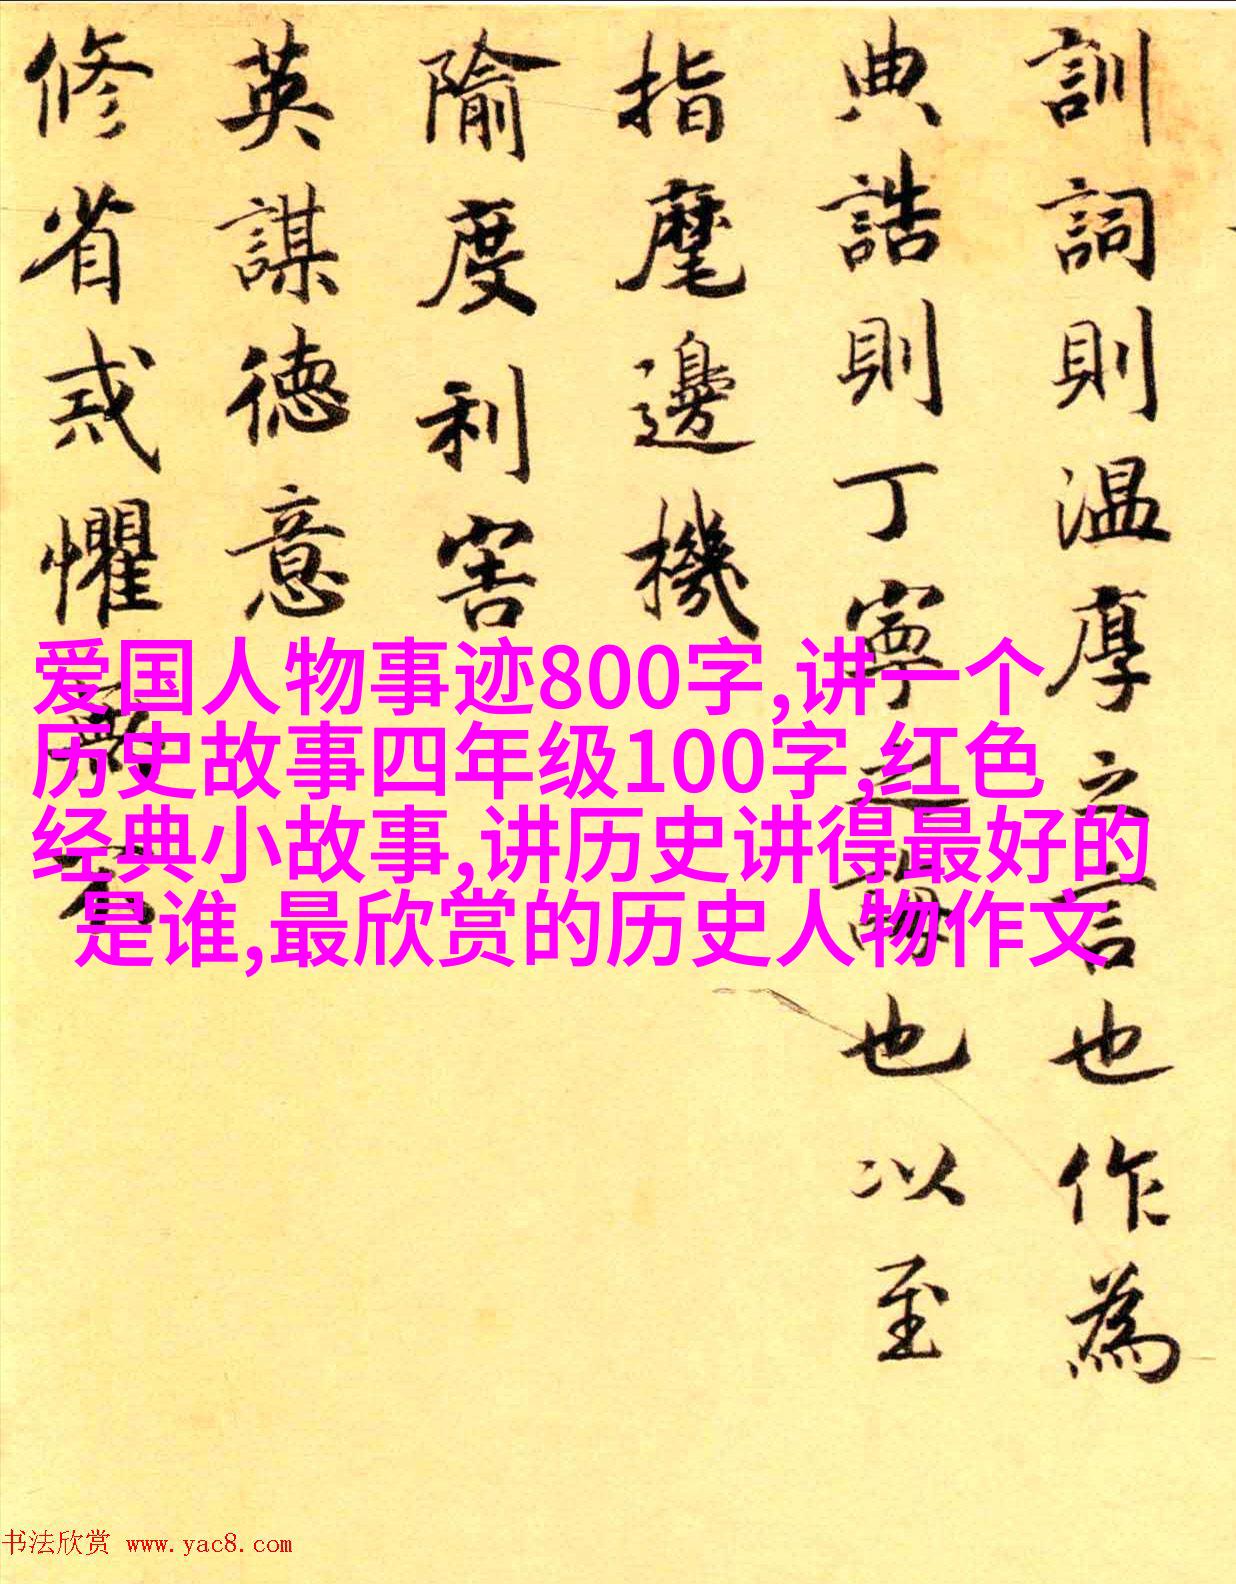 訓詞則温厚之言也作為
典誥則丁寧之誨也以至
指麾邊機
隃度利害
英謀德意
修省戒懼無不
爱国人物事迹800字,讲一个
历史故事四年级100字,红色
经典小故事,讲历史讲得最好的
是谁,最欣赏的历史人物作文
书法欣赏 www.yac8.com